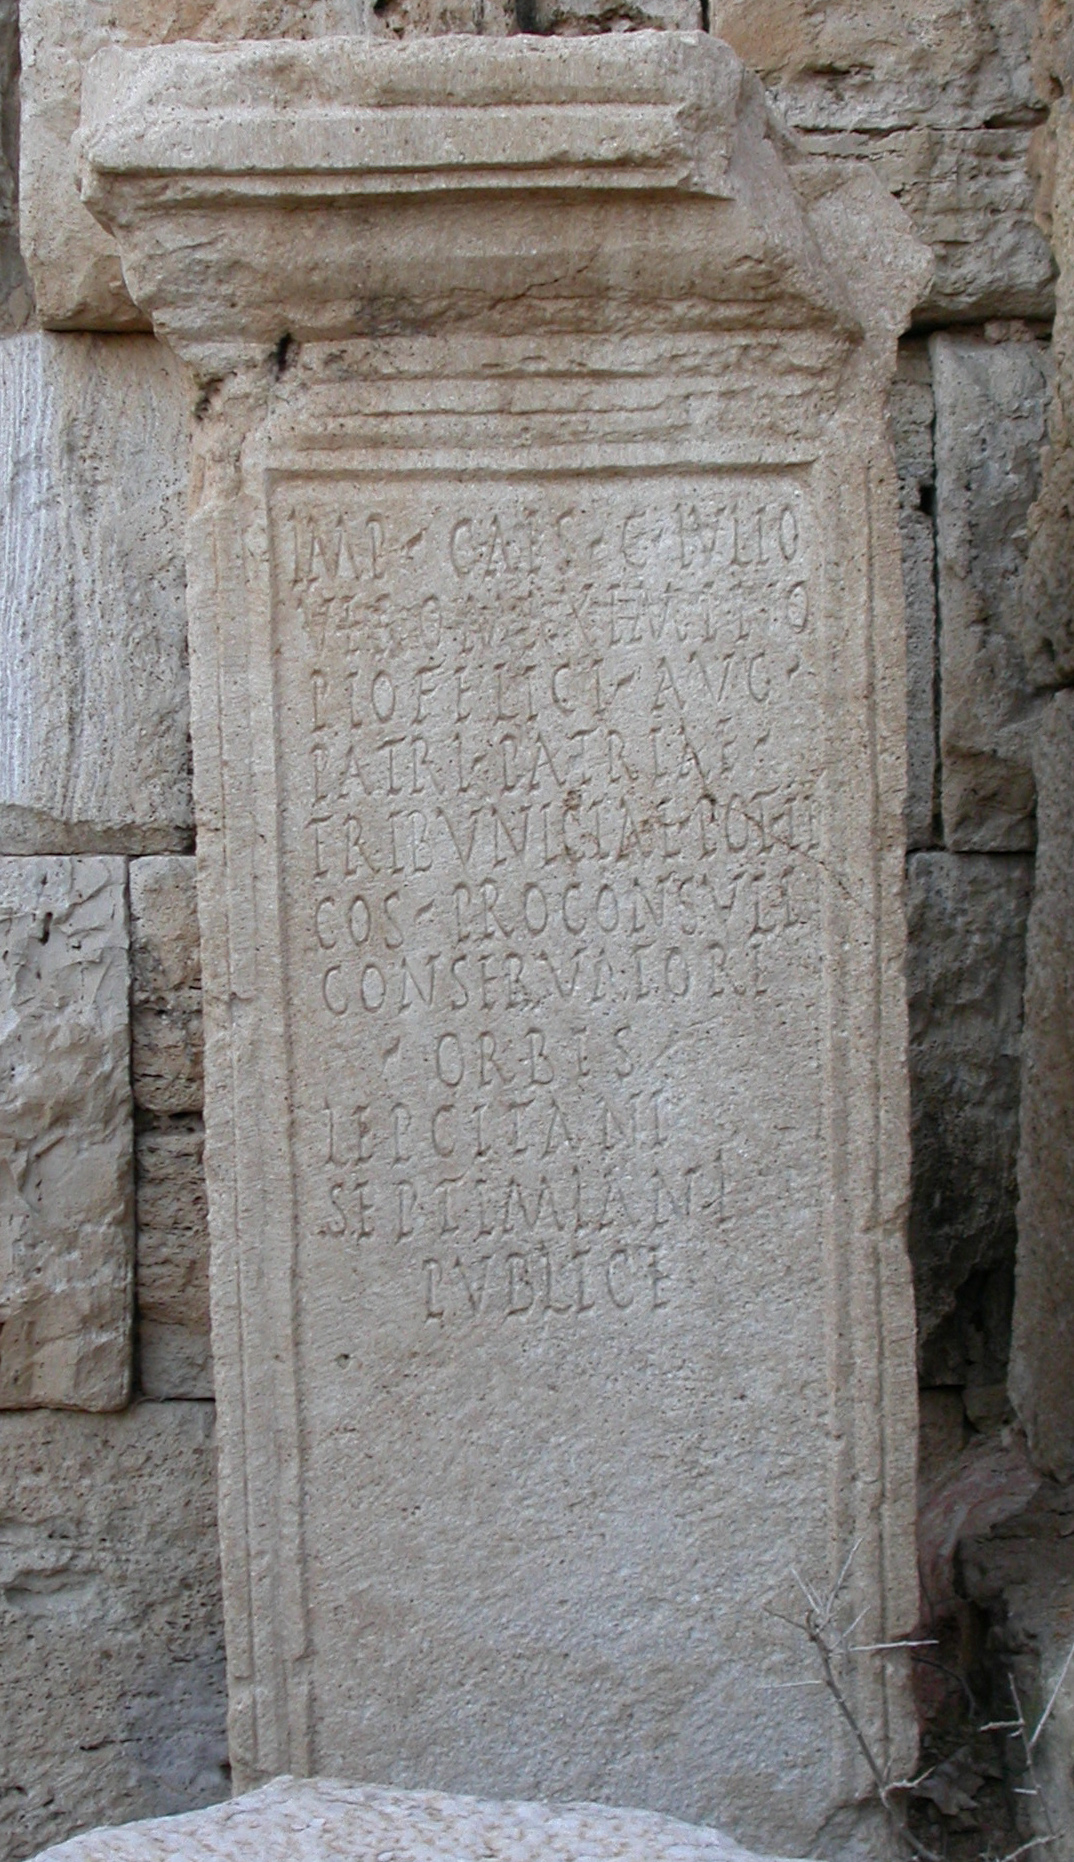 IMP CAES C IVLIO
PIO FELICI AVG
PATRI PATRIAE
TRIBVNICIAE
COS PROCONSVLI
CONSERVATORI
ORBIS
LEPCITANI
SEPTIMIANI
PVBLICE